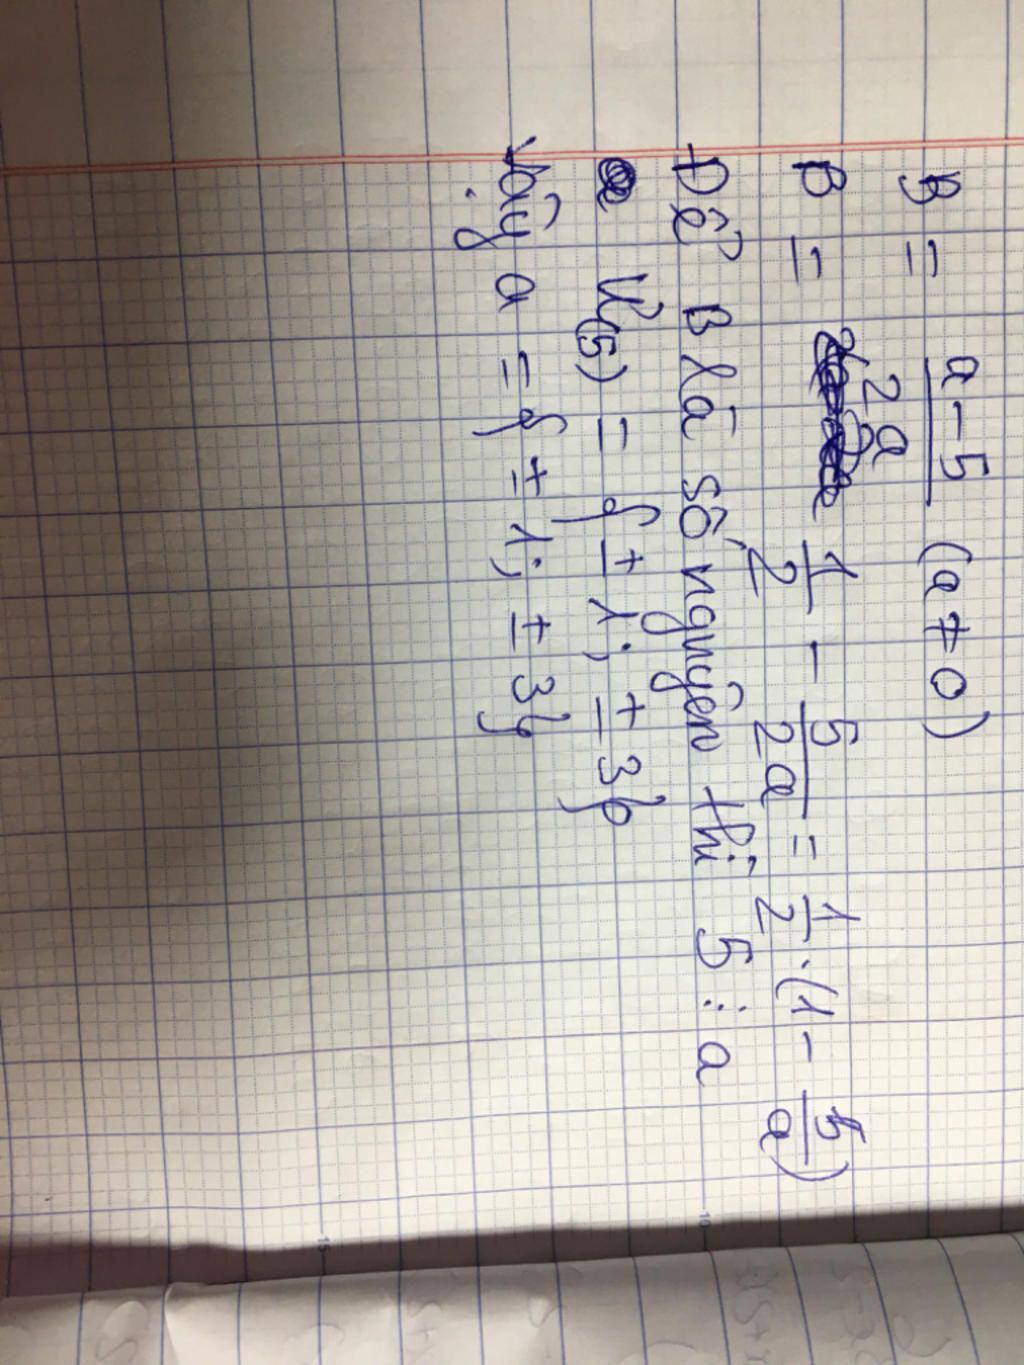 B = a-5/2a (a ≠ 0)
B = 1/2 - 5/2a = 1/2 . (1 - 5/a)
Để B là số nguyên thì 5 ⋮ a
Ư(5) = { ± 1; ± 3}
Vậy a = { ± 1; ± 3}
10
15